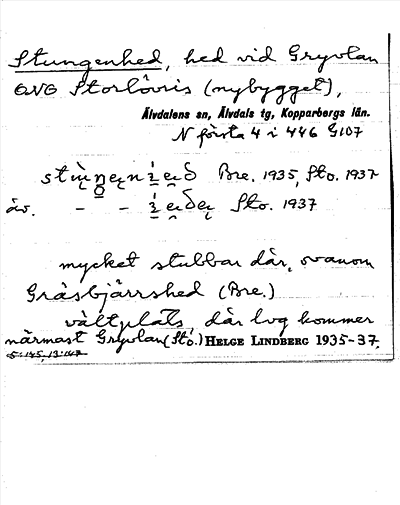 Stungenhed, hed vid Gryvlan
ÖVG Storlövris (nybygget),
Älvdalens sn, Älvdals tg, Kopparbergs län.
N första 4 i 446 G107
Bre. 1935, Sto. 1937
äv. - - Sto. 1937
mycket stubbar där, ovanom
Gräsbjärrshed (Bre.)
vältplats, där lvg kommer
närmast Gryvlan (Sto.) HELGE LINDBERG 1935-37.